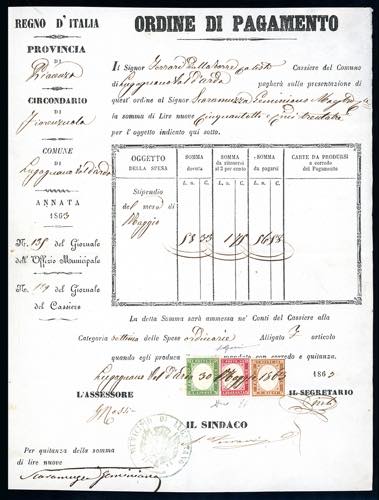 REGNO D'ITALIA
PROVINCIA
DI
Piacenza
CIRCONDARIO
DI
Fiorenzuola
COMUNE
DI
Lugagnano Val d'Arda
ANNATA
1863
N. 138 del Giornale
dell'Offizio Municipale
N. 119 del Giornale
del Cassiere
ORDINE DI PAGAMENTO
Il Signor Ferrari Cassiere del Comune
di Lugagnano Val d'Arda pagherà sulla presentazione di
quest'ordine al Signor Scaramuzza Geminiano
la somma di Lire nuove Cinquantotto e Cmi trentatre
per l'oggetto indicato qui sotto.
OGGETTO DELLA SPESA
SOMMA dovuta
SOMMA da ritenersi al 3 per cento
SOMMA da pagarsi
CARTE DA PRODURSI a corredo del Pagamento
L. n. C. L. n. C. L. n. C.
Stipendio
del mese di
Maggio
58 33 1 75 56 58
La detta Somma sarà ammessa ne' Conti del Cassiere alla
Categoria settima delle Spese ordinarie Allegato articolo
quando egli produca mandato con corredo e quitanza.
Lugagnano Val d'Arda 30 Maggio 1863 1863
L'ASSESSORE
IL SEGRETARIO
IL SINDACO
Per quitanza della somma
di lire nuove
Scaramuzza Geminiano